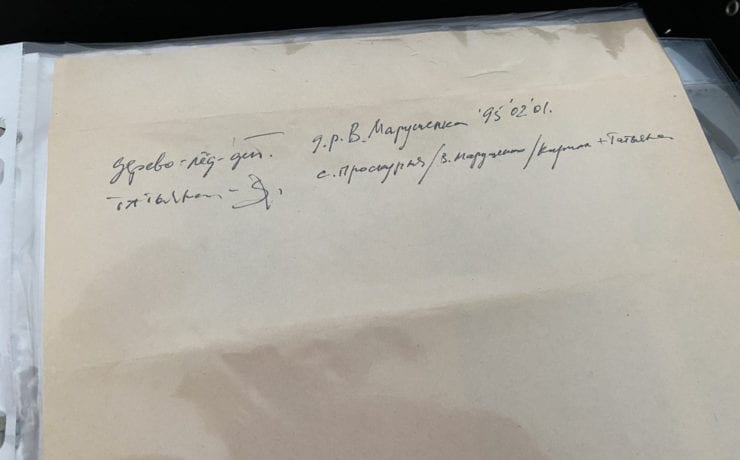 дерево-лёд-деп. д.р. В. Марущенка '95'02'01.
Татьяна - с. Проскурня/В. Марущенко/Кирилл + Татьяна